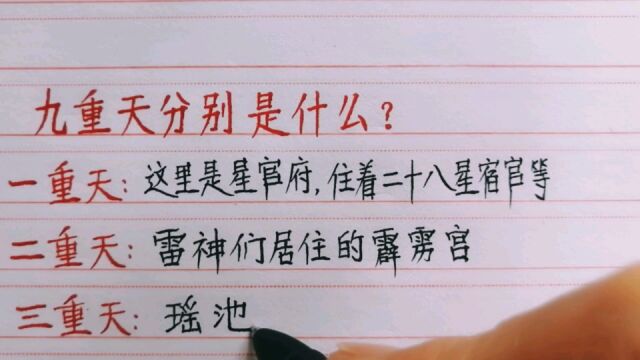 九重天分别是什么?
一重天:这里是星官府,住着二十八星宿官等
二重天:雷神们居住的霹雳宫
三重天:瑶池